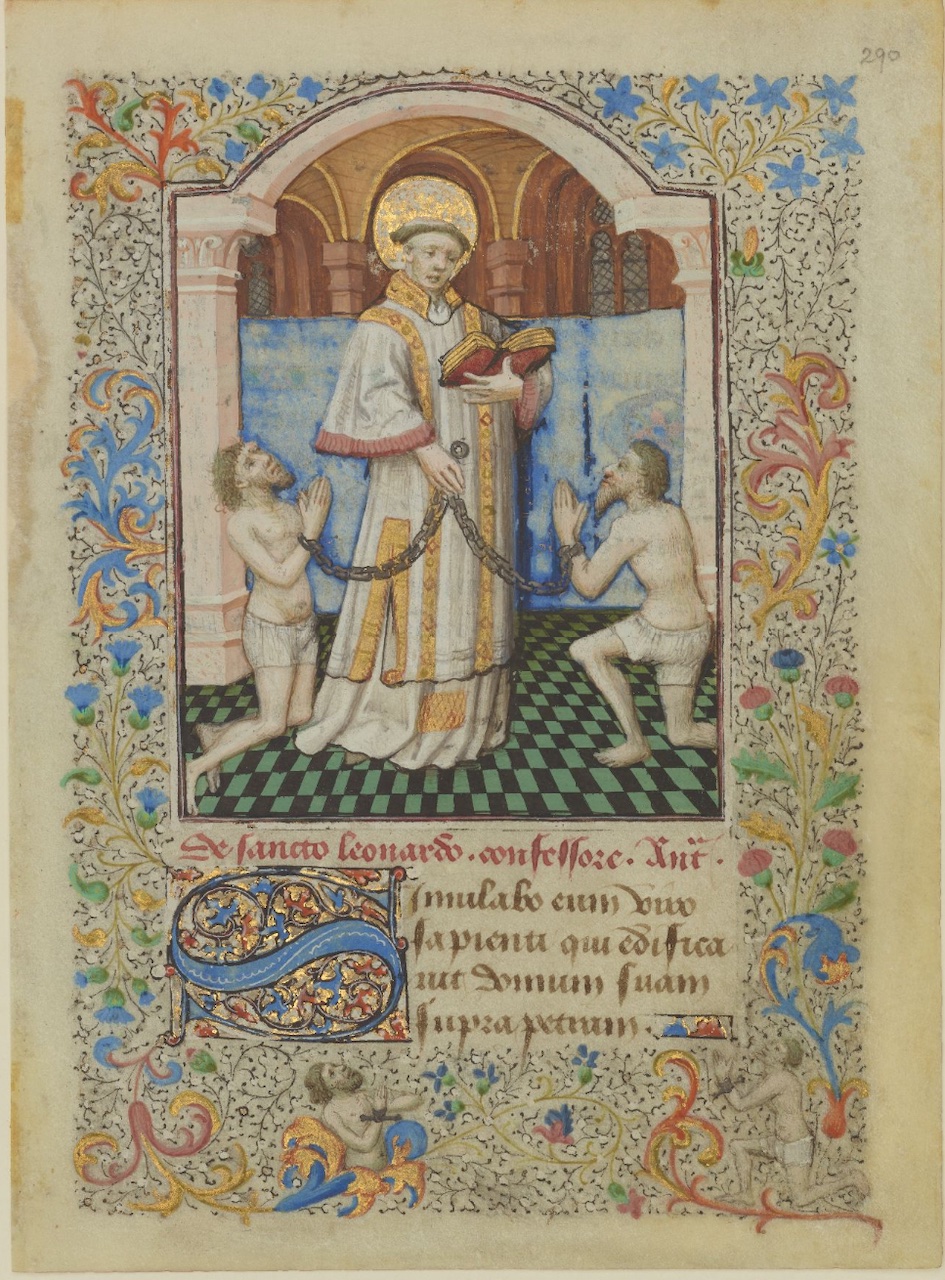 290
De sancto leonardo . confessore . Ant̄ .
Simulabo eum viro
sapienti qui edifica
uit domum suam
supra petram .